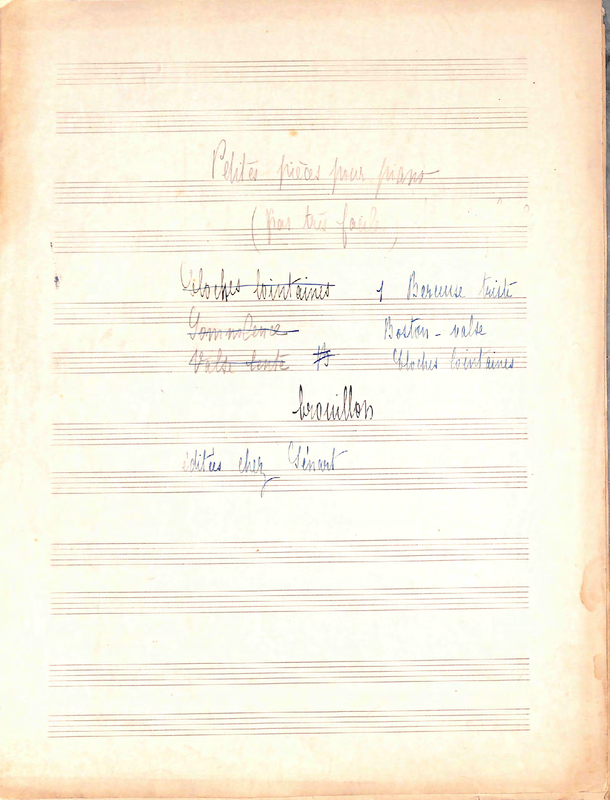 Petites pièces pour piano
(pas très facile)
Cloches lointaines 1 Berceuse triste
Somnolence Boston - valse
Valse lente Cloches lointaines
brouillon
éditées chez Sénart